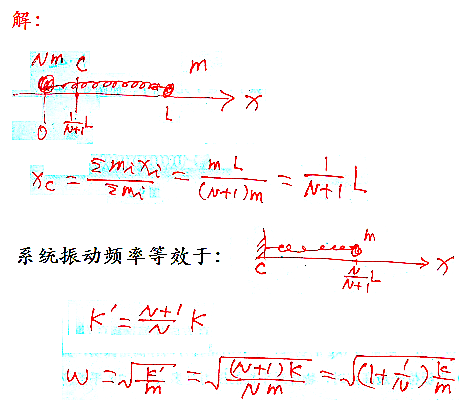 解:
Nm C m
O 1/(N+1) L L X
Xc = Σmixi/Σmi = mL/((N+1)m) = 1/(N+1) L
系统振动频率等效于:
m
C N/(N+1) L X
K' = (N+1)/N K
ω = √(k'/m) = √((N+1)k/(Nm)) = √((1+1/N) k/m)